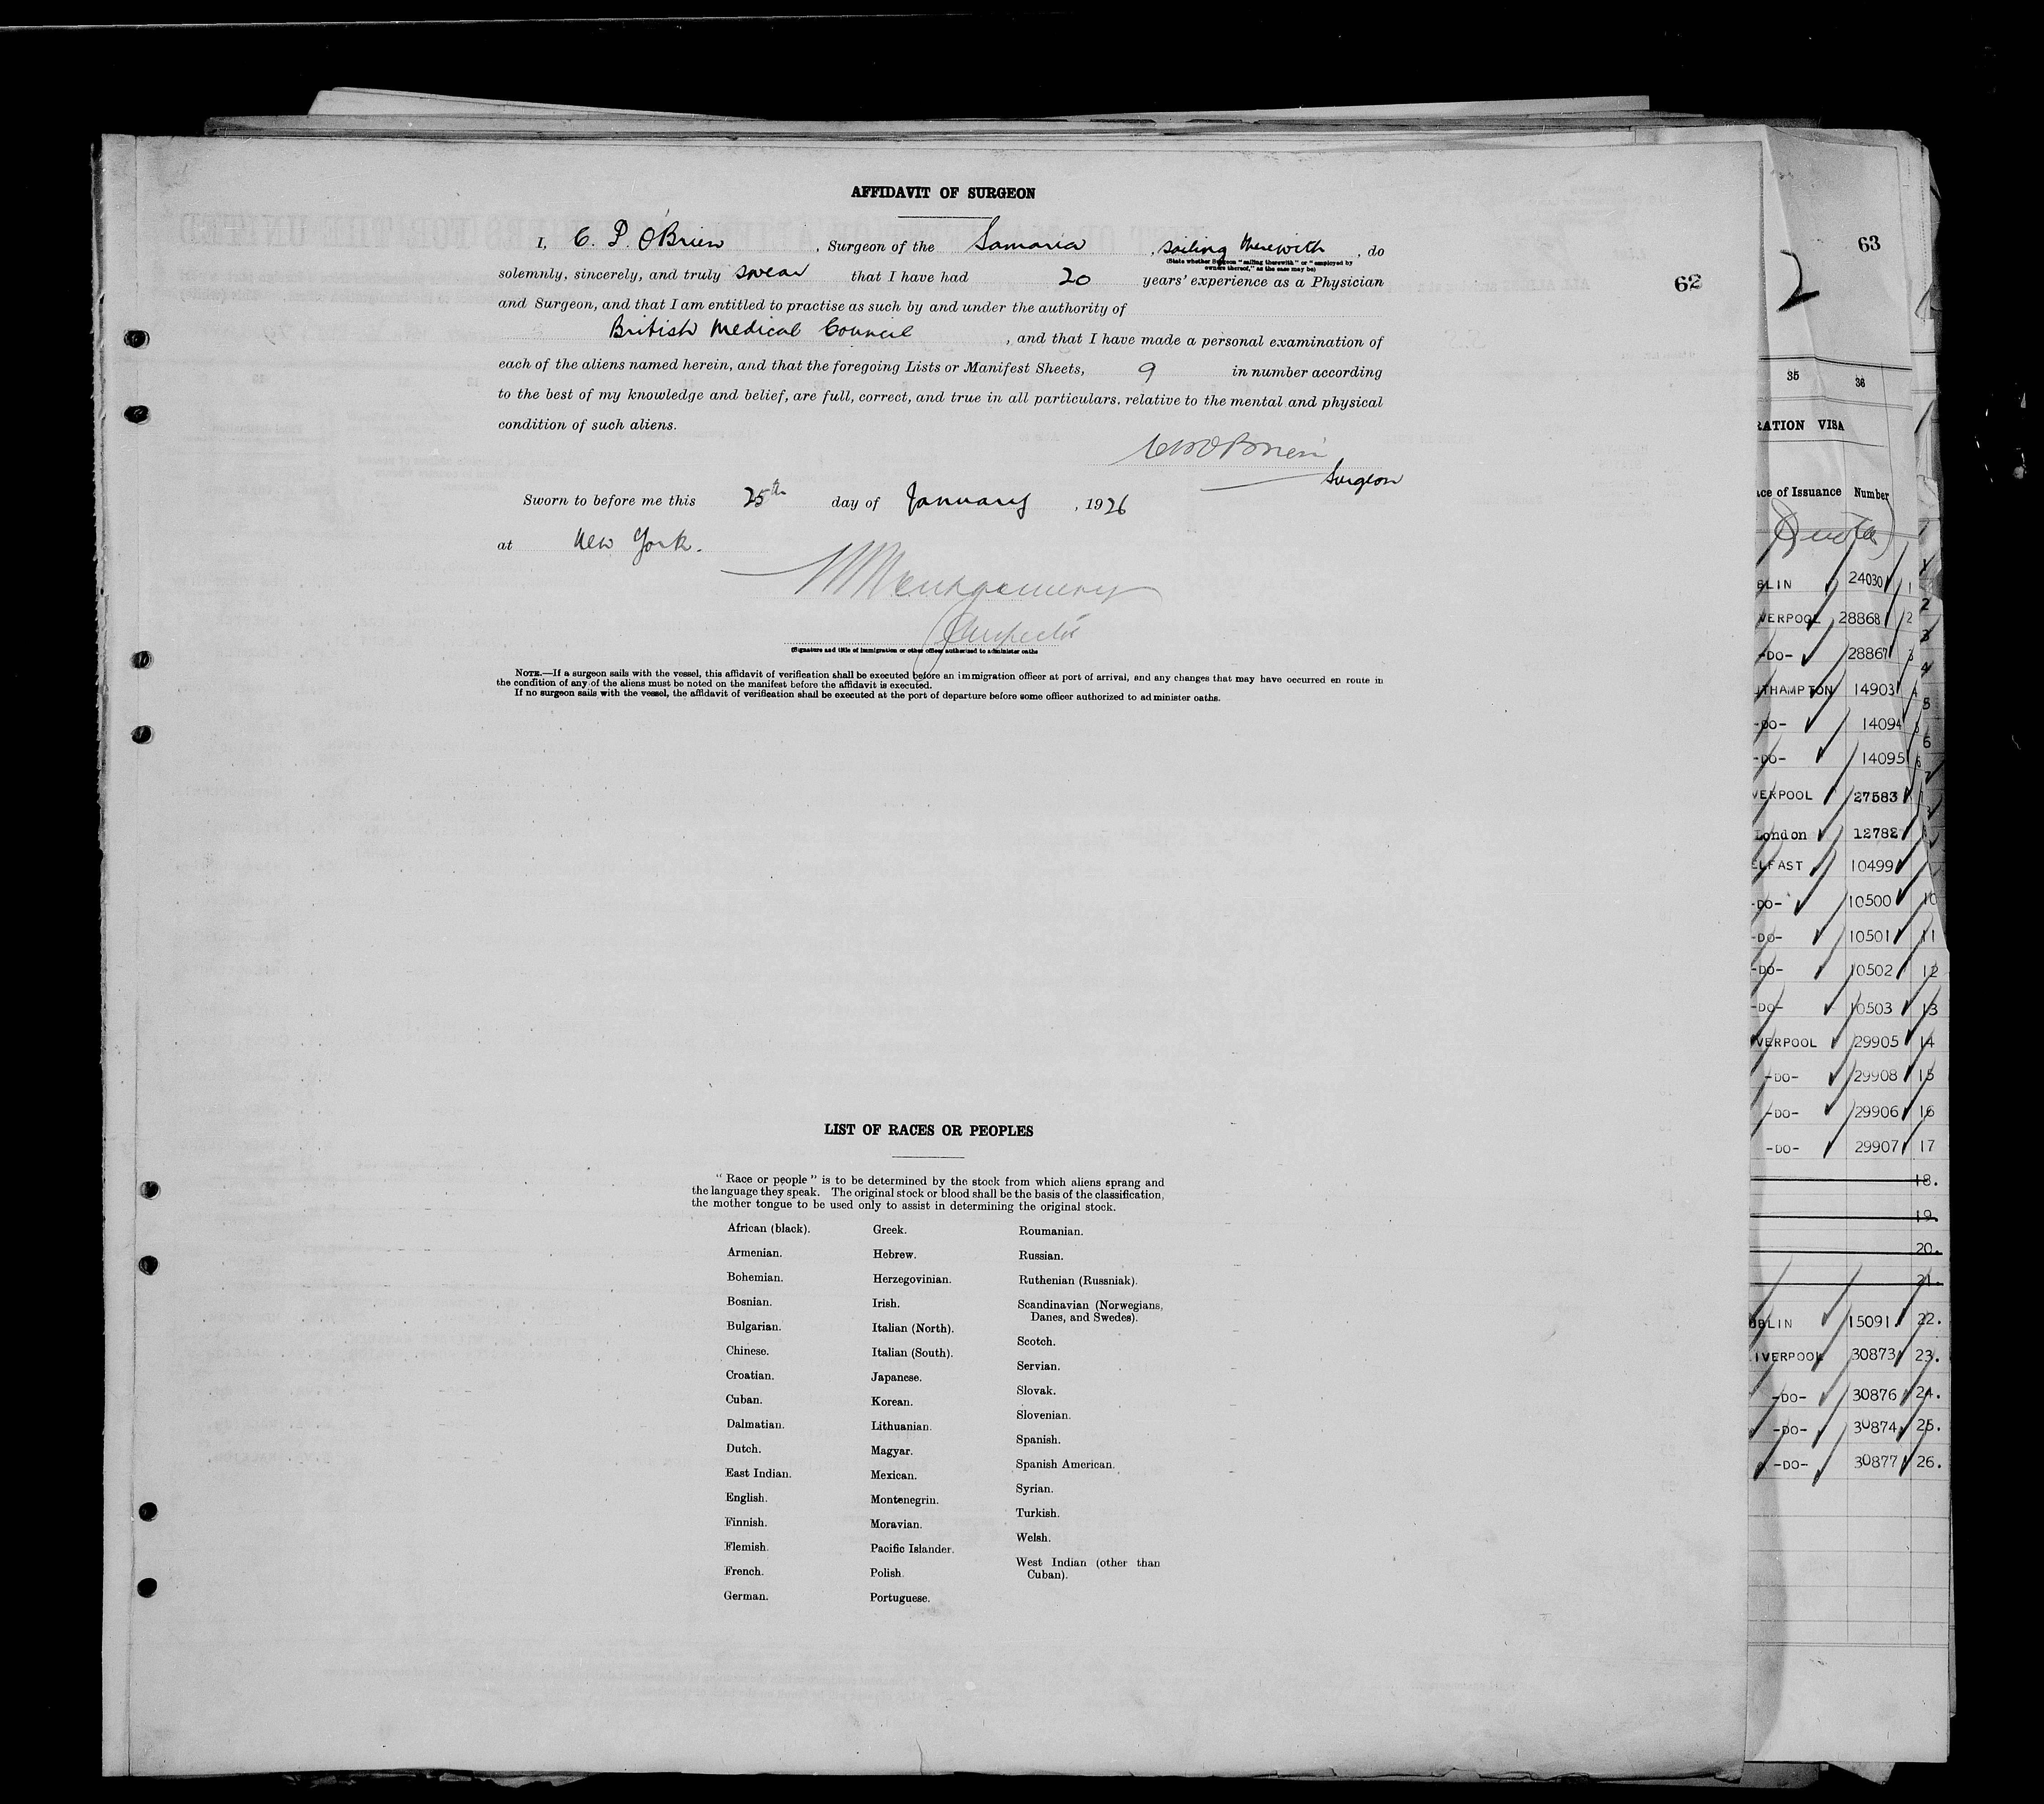 AFFIDAVIT OF SURGEON
I, C. P. O'Brien, Surgeon of the Samaria, sailing therewith, do
(State whether Surgeon "sailing therewith" or "employed by
owners thereof," as the case may be)
solemnly, sincerely, and truly swear that I have had 20 years' experience as a Physician
and Surgeon, and that I am entitled to practise as such by and under the authority of
British Medical Council, and that I have made a personal examination of
each of the aliens named herein, and that the foregoing Lists or Manifest Sheets, 9 in number according
to the best of my knowledge and belief, are full, correct, and true in all particulars, relative to the mental and physical
condition of such aliens.
O'Brien
Surgeon
Sworn to before me this 25th day of January, 1926
at New York.
Montgomery
Inspector
(Signature and title of immigration or other officer authorized to administer oaths
NOTE.—If a surgeon sails with the vessel, this affidavit of verification shall be executed before an immigration officer at port of arrival, and any changes that may have occurred en route in
the condition of any of the aliens must be noted on the manifest before the affidavit is executed.
If no surgeon sails with the vessel, the affidavit of verification shall be executed at the port of departure before some officer authorized to administer oaths.
62
LIST OF RACES OR PEOPLES
"Race or people" is to be determined by the stock from which aliens sprang and
the language they speak. The original stock or blood shall be the basis of the classification,
the mother tongue to be used only to assist in determining the original stock.
African (black).
Armenian.
Bohemian.
Bosnian.
Bulgarian.
Chinese.
Croatian.
Cuban.
Dalmatian.
Dutch.
East Indian.
English.
Finnish.
Flemish.
French.
German.
Greek.
Hebrew.
Herzegovinian.
Irish.
Italian (North).
Italian (South).
Japanese.
Korean.
Lithuanian.
Magyar.
Mexican.
Montenegrin.
Moravian.
Pacific Islander.
Polish.
Portuguese.
Roumanian.
Russian.
Ruthenian (Russniak).
Scandinavian (Norwegians,
Danes, and Swedes).
Scotch.
Servian.
Slovak.
Slovenian.
Spanish.
Spanish American.
Syrian.
Turkish.
Welsh.
West Indian (other than
Cuban).
63
2
35 36
RATION VISA
ace of Issuance Number
BLIN 24030 1
VERPOOL 28868 2
-DO- 28867 3
THAMPTON 14903 4
-DO- 14094 5
-DO- 14095 6
VERPOOL 27583
London 12782
ELFAST 10499
-DO- 10500 10
-DO- 10501 11
-DO- 10502 12
-DO- 10503 13
VERPOOL 29905 14
-DO- 29908 15
-DO- 29906 16
-DO- 29907 17
18.
19.
20.
21.
UBLIN 15091. 22.
IVERPOOL 30873 23.
-DO- 30876 24.
-DO- 30874 25.
-DO- 30877 26.